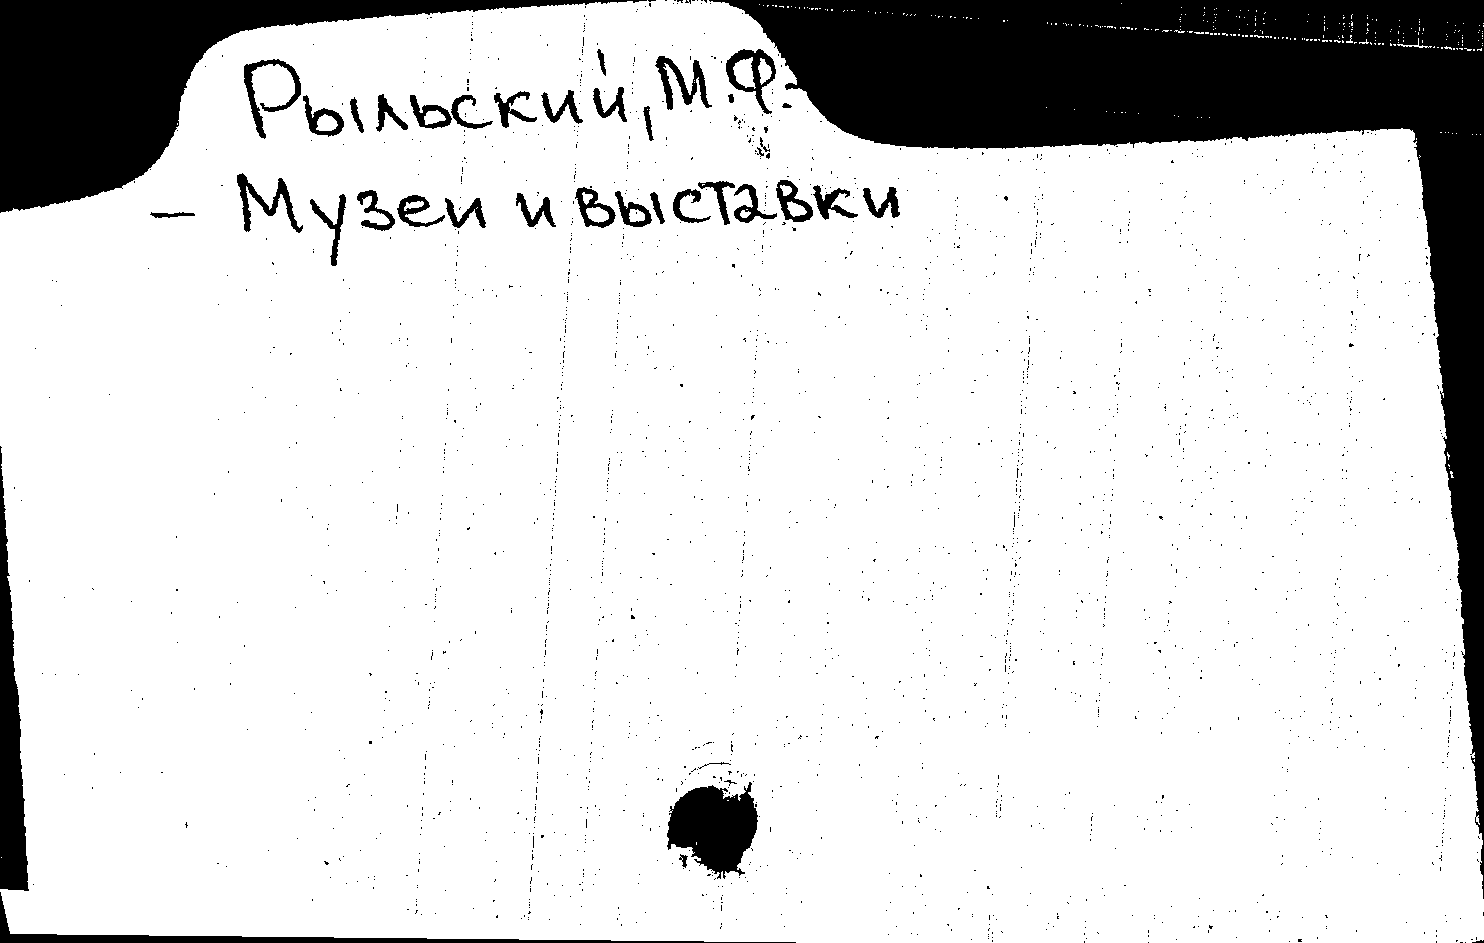 Рыльский, М.Ф.-
— Музеи и выставки